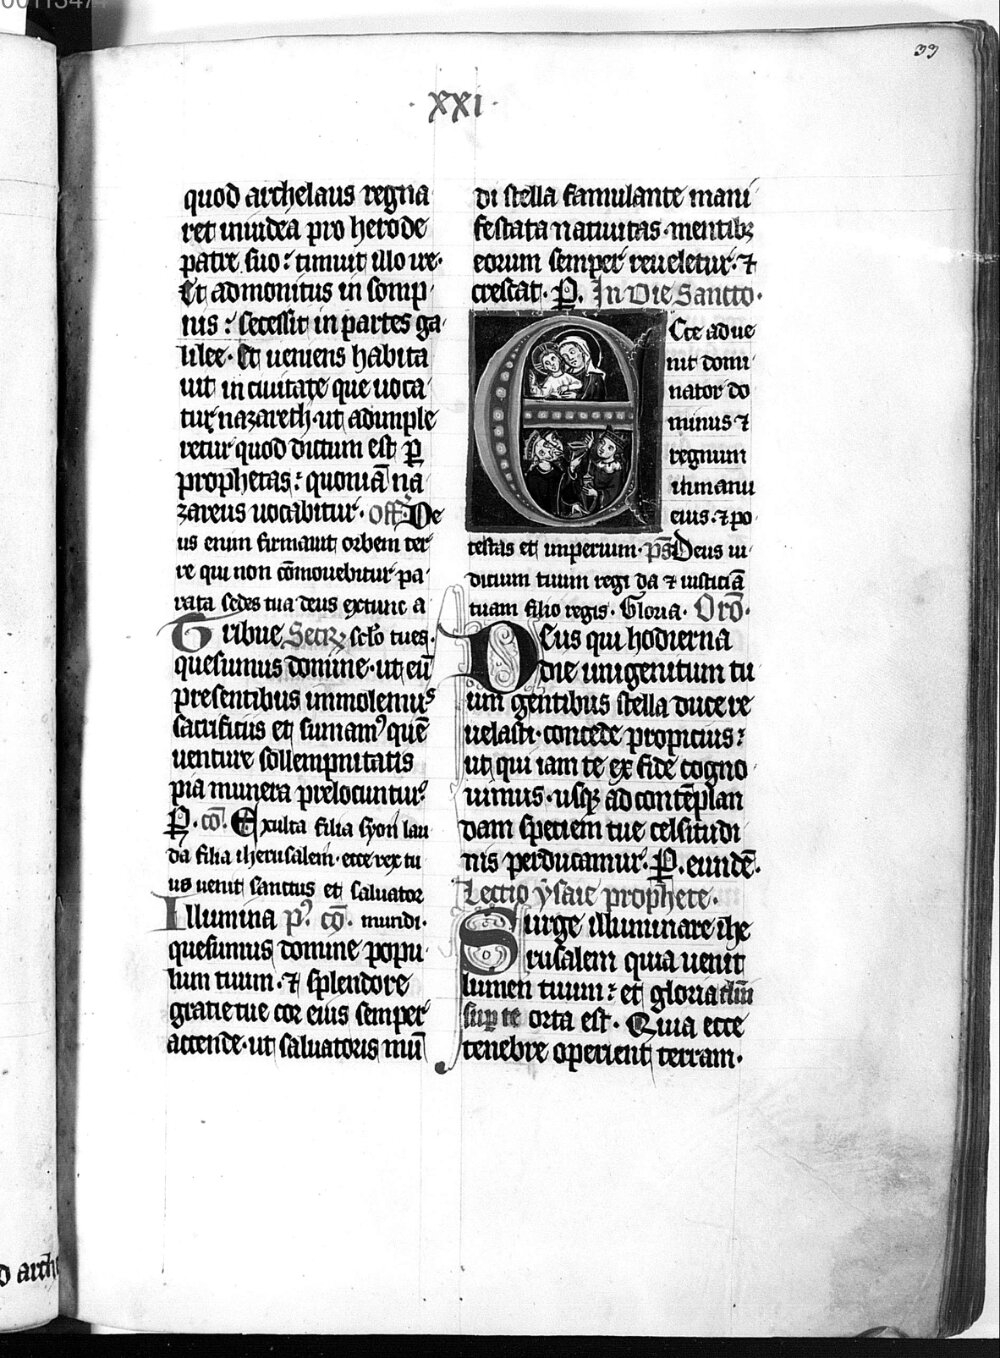 33
· xxi ·
quod archelaus regna
ret iniudea pro herode
patre suo : timuit illo ire ·
Et admonitus in somp
nis : secessit in partes ga
lilee · Et ueniens habita
uit in ciuitate que uoca
tur nazareth · ut adimple
retur quod dictum est ꝑ
prophetas : quoniā na
zareus uocabitur · off̄ De
us enim firmauit orbem ter
re qui non cōmouebitur pa
rata sedes tua deus extunc a
Tribue Secr̄ sc̄lo tu es ·
quesumus domine · ut eū
presentibus immolemꝰ
sacrificiis et sumamꝰ quē
venture sollempnitatis
pia munera prelocuntur
P · cō · Exulta filia syon lau
da filia iherusalem · ecce rex tu
us uenit sanctus et saluator
Illumina pꝰ cō · mundi ·
quesumus domine popu
lum tuum · ⁊ splendore
gratie tue cor eius semper
accende · ut saluatoris mū
di stella famulante mani
festata natiuitas · mentibꝫ
eorum semper reueletur · ⁊
crescat · P · In die sancto ·
Ecce adue
nit domi
nator do
minus ⁊
regnum
inmanu
eius · ⁊ po
testas et imperium · ps̄ Deus iu
dicium tuum regi da ⁊ iusticiā
tuam filio regis · Gloria · Orō ·
Deus qui hodierna
die unigenitum tu
um gentibus stella duce re
uelasti · concede propicius :
ut qui iam te ex fide cogno
uimus · usqꝫ ad contēplan
dam speciem tue celsitudi
nis perducamur · P · eundē ·
Lectio ysaie prophete ·
Surge illuminare ihe
rusalem quia uenit
lumen tuum : et gloria dn̄i
suꝑ te orta est · Quia ecce
tenebre operient terram ·